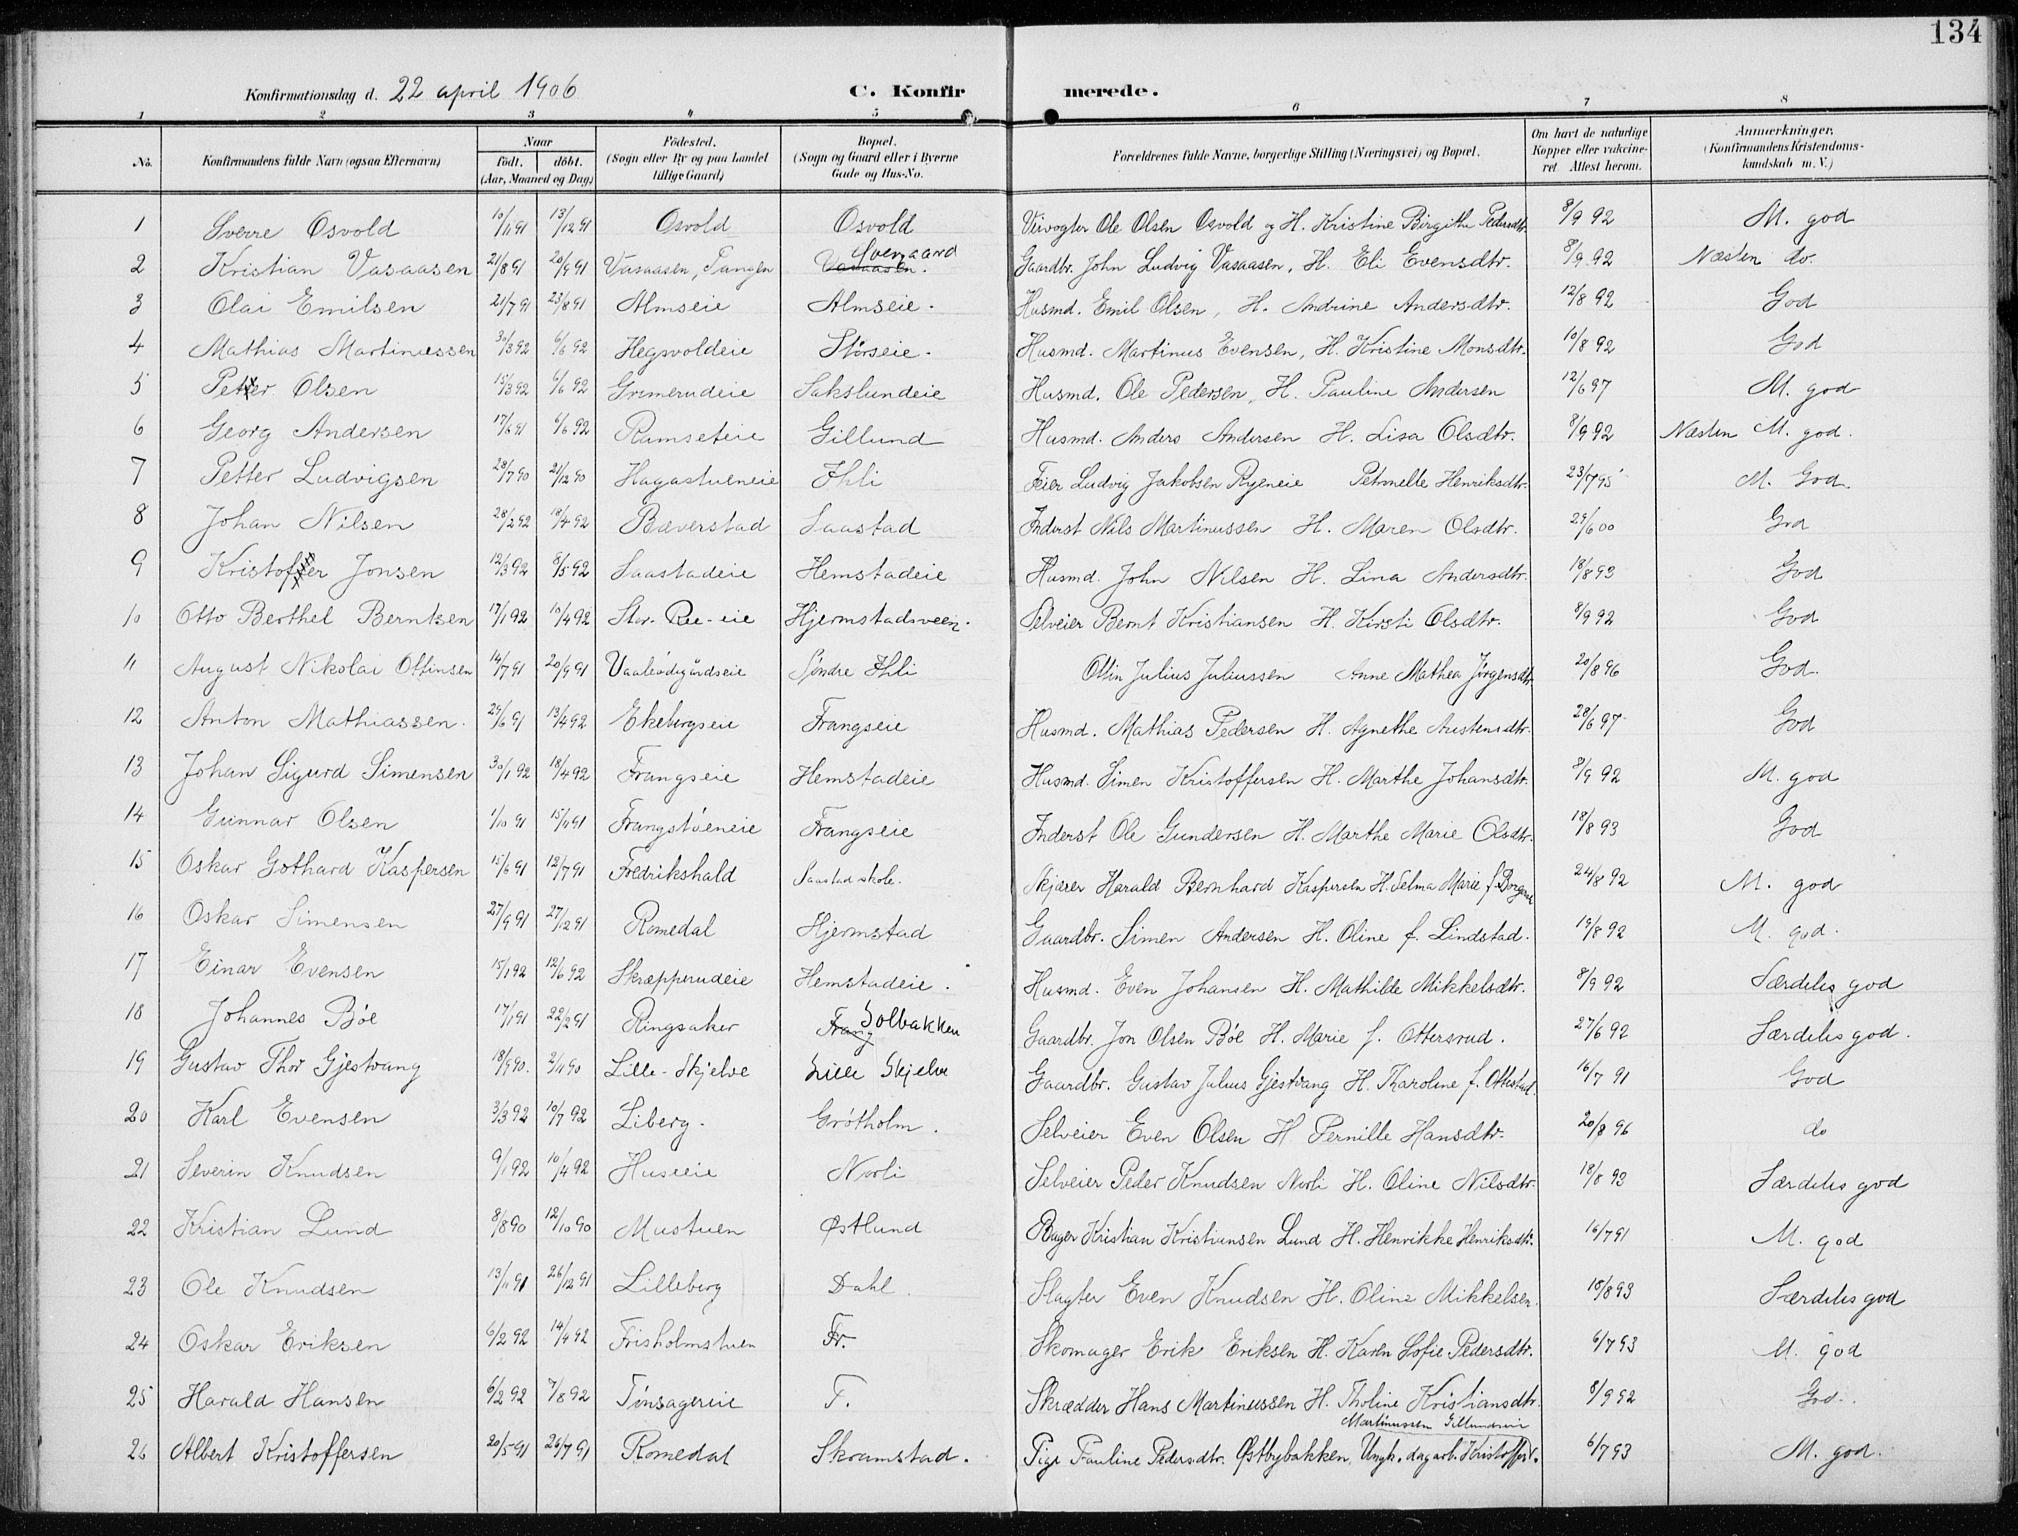 134
Konfirmationsdag d. 22 april 1906 C. Konfirmerede.
1 2 3 4 5 6 7 8
No. Konfirmandens fulde Navn (ogsaa Efternavn) Naar født, døbt. (Aar, Maaned og Dag) Fødested. (Sogn eller By og paa Landet tillige Gaard) Bopæl. (Sogn og Gaard eller i Byerne Gade og Hus-No. Forældrenes fulde Navne, borgerlige Stilling (Næringsvei) og Bopæl. Om havt de naturlige Kopper eller vakcineret Attest herom. Anmerkninger, (Konfirmandens Kristendomskundskab m. V.)
1 Sverre Osvold 10/11 91 13/12 91 Osvold Osvold Veivogter Ole Olsen Osvold og H. Kristine Birgithe Pedersdtr. 8/9 92 M. god
2 Kristian Vasaasen 21/8 91 20/9 91 Vasaasen, Tangen Vasaasen. 8/9 92 Gaardbr. John Ludvig Vasaasen, H. Eli Evensdtr. Næsten do.
3 Olai Emilsen 21/7 91 23/8 91 Almseie Almseie. Husmd. Emil Olsen, H. Andrine Andersdtr. 12/8 92 God
4 Mathias Martinussen 30/3 92 6/6 92 Hegsvoldeie Størseie. Husmd. Martinus Evensen, H. Kristine Monsdtr. 10/8 92 God
5 Petter Olsen 15/3 92 6/6 92 Grimerudeie Sakslundeie Husmd. Ole Pedersen, H. Pauline Andersen 12/6 97 M. god
6 Georg Andersen 17/6 91 6/6 92 Ramseteie Gillund Husmd. Anders Andersen H. Lisa Olsdtr. 8/9 92 Næsten M. god.
7 Petter Ludvigsen 28/7 90 21/12 90 Hagastueneie Ihli Feier Ludvig Jakobsen Ryeneie Petronelle Henriksdtr. 23/7 95 M. God.
8 Johan Nilsen 28/2 92 18/4 92 Bæverstad Saastad Inderst Nils Martinussen H. Maren Olsdtr. 29/6 00 God
9 Kristoffer Jonsen 12/3 92 8/5 92 Saastadeie Hemstadeie Husmd. John Nilsen H. Lina Andersdtr. 18/8 93 God
10 Otto Berthel Berntsen 17/1 92 10/4 92 Stor-Ree-eie Hjermstadsveen. Selveier Bernt Kristiansen H. Kirsti Olsdtr. 8/9 92 God
11 August Nikolai Ottinsen 14/7 91 20/9 91 Søndre Ihli Ottin Julius Juliussen Anne Mathea Jørgensdtr. 20/8 96 God.
12 Anton Mathiassen. 29/6 91 13/4 92 Ekebergseie Frangseie Husmd. Mathias Pedersen H. Agnethe Austensdtr. 28/6 97 God
13 Johan Sigurd Simensen 30/1 92 18/4 92 Frangseie Hemstadeie Husmd. Simen Kristoffersen H. Marthe Johansdtr. 8/9 92 M. god
14 Gunnar Olsen 1/10 91 15/11 91 Frangstøeneie Frangseie Inderst Ole Gundersen H. Marthe Marie Olsdtr. 18/8 93 God
15 Oskar Gothard Kaspersen 15/6 91 12/7 91 Fredrikshald Saastad skole. Skjærer Harald Bernhard Kaspersen H. Selma Marie f. 24/8 92 M. god
16 Oskar Simensen 27/9 91 27/12 91 Romedal Hjermstad Gaardbr. Simen Andersen H. Oline f. Lindstad. 19/8 92 M. god.
17 Einar Evensen 15/1 92 12/6 92 Skræpperudeie Hemstadeie. Husmd. Even Johansen H. Mathilde Mikkelsdtr. 8/9 92 Særdeles god
18 Johannes Bøe 17/1 91 22/2 91 Ringsaker Frang Solbakken Gaardbr. Jon Olsen Bøe H. Marie f. Ottersrud. 27/6 92 Særdeles god.
19 Gustav Thor Gjestvang 18/9 90. 2/11 90 Lille-Skjelve Lille Skjelve Gaardbr. Gustav Julius Gjestvang H. Karoline f. Ottestad. 16/7 91 God
20 Karl Evensen 3/3 92 10/7 92 Liberg. Grøtholm. Selveier Even Olsen H Pernille Hansdtr. 20/8 96 do
21 Severin Knudsen 9/1 92 10/4 92 Huseeie Norli Selveier Peder Knudsen Norli H. Oline Nilsdtr. 18/8 92 Særdeles god
22 Kristian Lund 8/8 90 12/10 90 Mustuen Østlund Bager Kristian Kristiansen Lund H. Henrikke Henriksdtr. 16/7 91 M. god
23 Ole Knudsen 13/11 91 26/12 91 Lilleberg Dahl. Slagter Even Knudsen H. Oline Mikkelsen. 18/8 93 Særdeles god
24 Oskar Eriksen 6/2 92 14/4 92 Frisholmstuen Fr. Skomager Erik Eriksen H. Karen Sofie Pedersdtr. 6/7 93 M. god
25 Harald Hansen 6/2 92 7/8 92 Tønsagereie F. Skrædder Hans Martinussen H. Tholine Kristiansdtr. 8/9 92 God.
Martinussen Gillundseie
26 Albert Kristoffersen 20/5 91 26/7 91 Romedal Skramstad. Pige Pauline Pedersdtr. Østbybakken, Ungk. dagarb. Kristoffer 6/7 93 M. god.